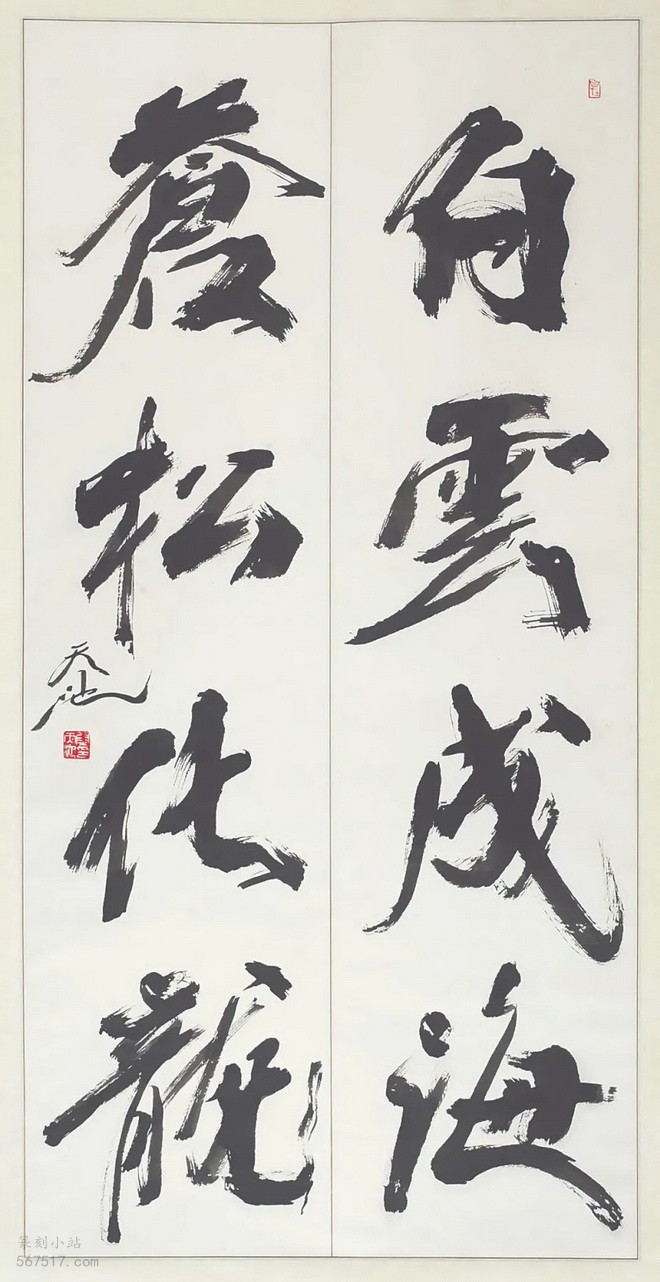 白雲成海
蒼松化龍
天池
篆刻小站
567517.com